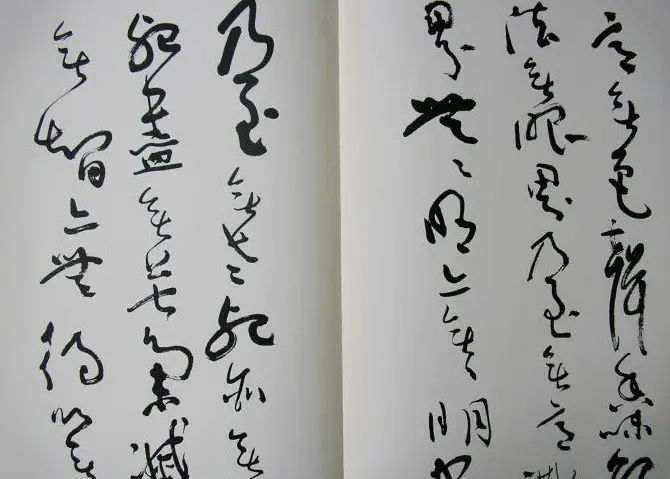 意無色聲香味觸
法無眼界乃至無意識
界無〻明亦無明
乃至無老〻死亦無
死盡無苦集滅
無智亦無得以無